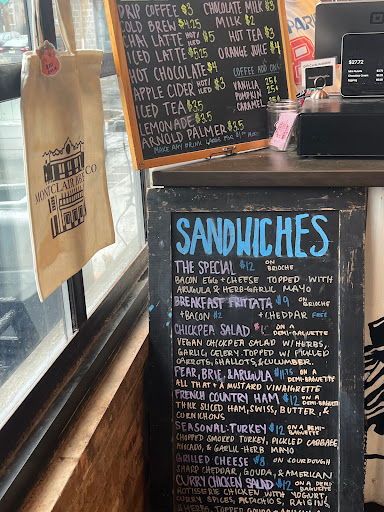 DRIP COFFEE $3
COLD BREW $4.25
CHAI LATTE HOT/ICED $5
ICED LATTE $5.25
HOT CHOCOLATE $4
APPLE CIDER HOT/ICED $3
ICED TEA $3.5
LEMONADE $3.5
ARNOLD PALMER $3.5
MAKE ANY DRINK LARGE FOR $1 MORE!
CHOCOLATE MILK $3
MILK $2
HOT TEA $3
ORANGE JUICE $4
COFFEE ADD ONS:
VANILLA 25¢
PUMPKIN 25¢
CARAMEL
MONTCLAIR BREAD CO
$27.72
SANDWICHES
THE SPECIAL $12 ON BRIOCHE
BACON EGG + CHEESE TOPPED WITH
ARUGULA & HERB-GARLIC MAYO
BREAKFAST FRITTATA $9 ON BRIOCHE
+BACON $2 +CHEDDAR FREE
CHICKPEA SALAD ON A DEMI-BAGUETTE
VEGAN CHICKPEA SALAD W/HERBS,
GARLIC, CELERY. TOPPED W/ PICKLED
CARROTS, SHALLOTS, & CUCUMBER.
PEAR, BRIE, & ARUGULA $11.75 ON A DEMI-BAGUETTE
ALL THAT + A MUSTARD VINAIGRETTE
FRENCH COUNTRY HAM $12 ON A DEMI-BAGUETTE
THICK SLICED HAM, SWISS, BUTTER, &
CORNICHONS
SEASONAL-TURKEY $12 ON A DEMI-BAGUETTE
CHOPPED SMOKED TURKEY, PICKLED CABBAGE,
AVOCADO, & GARLIC-HERB MAYO
GRILLED CHEESE $8 ON SOURDOUGH
SHARP CHEDDAR, GOUDA, & AMERICAN
CURRY CHICKEN SALAD $12 ON A DEMI BAGUETTE
ROTISSERIE CHICKEN WITH YOGURT,
CURRY SPICES, PISTACHIOS, RAISINS,